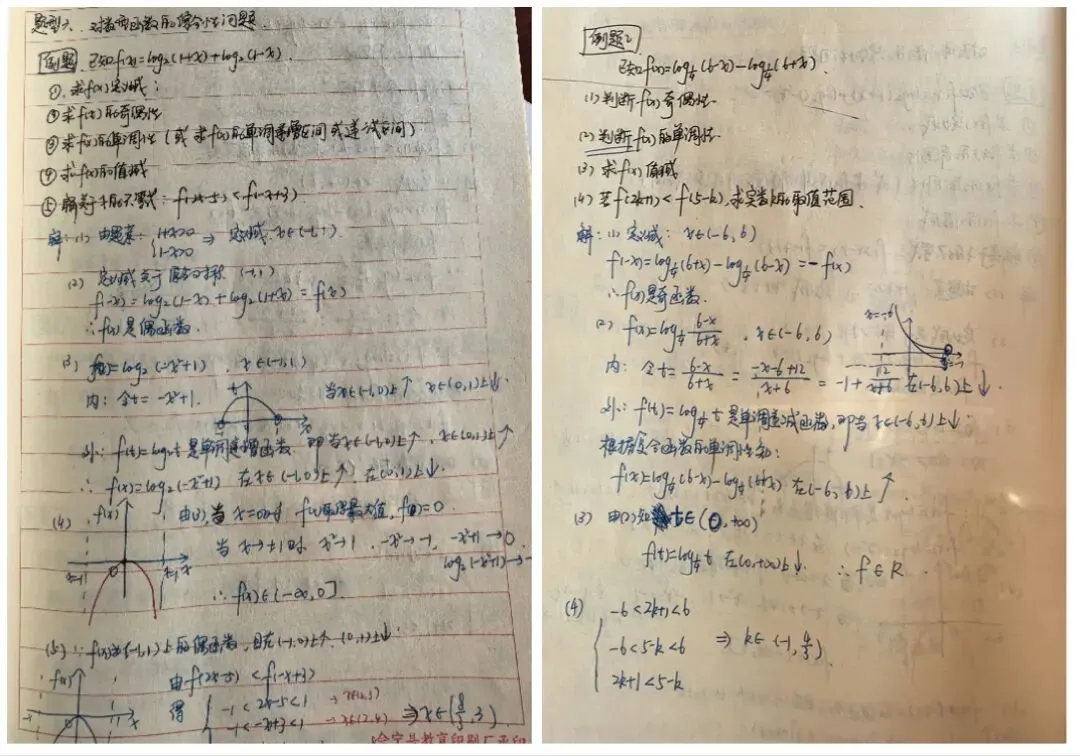 题型六、对数型函数的综合性问题.
例题 已知f(x)=log₂(1+x)+log₂(1-x)
①. 求f(x)定域;
②求f(x)的奇偶性
③求f(x)的单调性(或求f(x)的单调递增区间或递减区间)
④求f(x)的值域
⑤解关于x的不等式: f(2x-5)<f(-x+3)
解:(1) 由题意: {1+x>0 1-x>0 ⇒ 定义域 x∈(-1,1)
(2) 定域关于原点对称 (-1,1)
f(-x)=log₂(1-x)+log₂(1+x)=f(x)
∴f(x)是偶函数.
(3) f(x)=log₂(-x²+1) , x∈(-1,1)
内: 令t=-x²+1. 当x∈(-1,0)上↑ x∈(0,1)上↓.
外: f(t)=log₂t是单调递增函数. 即当x∈(-1,0)上↑, x∈(0,1)上↑
∴ f(x)=log₂(-x²+1) 在x∈(-1,0)上↑ 在(0,1)上↓.
(4) f(x) 由(3), 当x=0时 f(x)取得最大值, f(0)=0.
当x→±1时 x²→1 , -x²→-1, -x²+1→0
log₂(-x²+1)→-
x=-1 0 x=1 x
∴f(x)∈(-∞,0].
(5) ∵f(x)为(-1,1)上的偶函数, 且在(-1,0)上↑ (0,1)上↓.
f(x) 由f(2x-5)<f(-x+3)
得 { -1<2x-5<1 → x∈(2,3)
-1<-x+3<1 → x∈(2,4) ⇒x∈(8/3,3).
-1 0 1 x
会宁县教育印刷厂承印
例题2
已知f(x)=log¼(6-x)-log¼(6+x).
(1)判断f(x)奇偶性.
(2)判断f(x)的单调性.
(3)求f(x)值域
(4)若f(2k+1)<f(5-k), 求实数k的取值范围.
解:(1) 定域: x∈(-6,6)
f(-x)=log¼(6+x)-log¼(6-x)=-f(x)
∴f(x)是奇函数.
(2) f(x)=log¼ (6-x)/(6+x) , x∈(-6,6) x=-6
内: 令t=(6-x)/(6+x)=(-x-6+12)/(x+6)=-1+12/(x+6) 在(-6,6)上↓.
外: f(t)=log¼t是单调递减函数, 即当x∈(-6,6)上↓.
根据复合函数的单调性知:
f(x)=log¼(6-x)-log¼(6+x) 在(-6,6)上↑.
(3) 由(2)知 t∈(0,+∞)
f(t)=log¼t 在(0,+∞)上↓. ∴f∈R.
(4) { -6<2k+1<6
-6<5-k<6 ⇒ k∈(-1,4/3).
2k+1<5-k